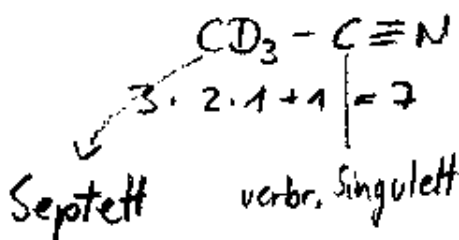 CD₃ – C ≡ N
3 · 2 · 1 + 1 = 7
Septett verbr. Singulett